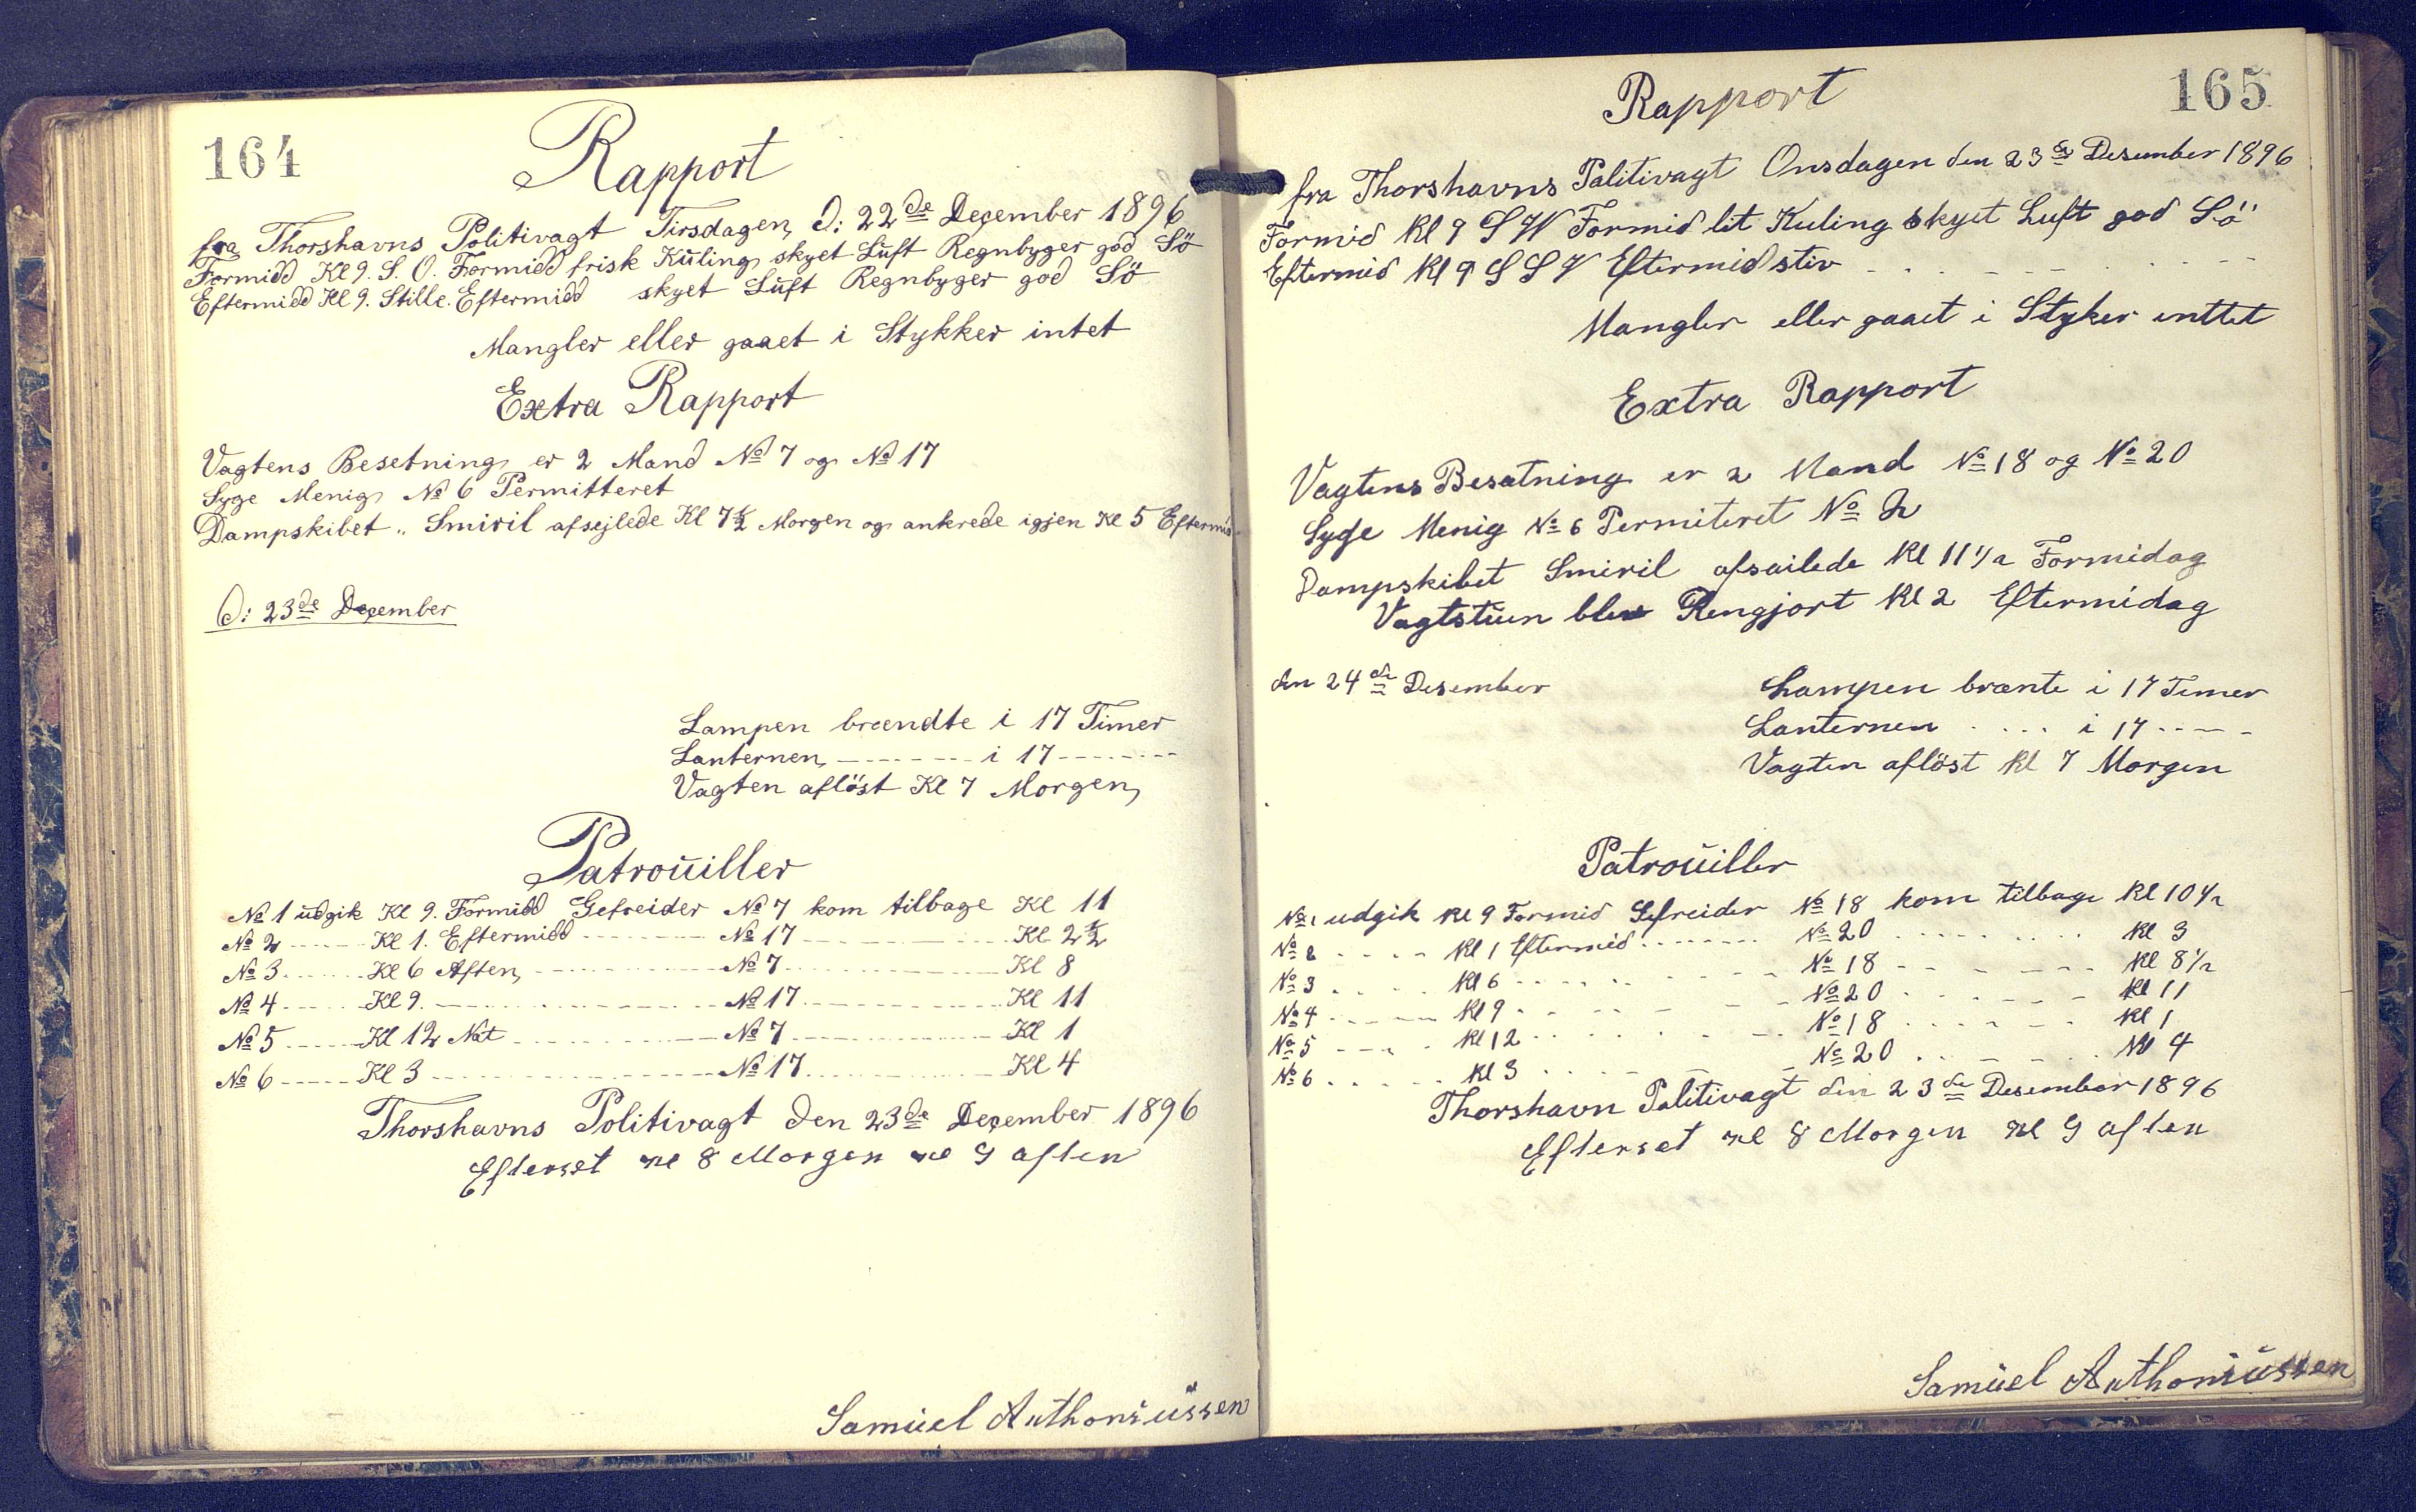 164
Rapport
fra Thorshavns Politivagt Tirsdagen, d: 22de December 1896
Formidd Kl 9. S. O. Formidd frisk Kuling skyet Luft Regnbyger god Sö
Eftermidd Kl 9. Stille. Eftermidd skyet Luft Regnbyger god Sö
Mangler eller gaaet i Stykker intet
Extra Rapport
Vagtens Besetning er 2 Mand No 7 og No 17
Syge Menig No 6 Permitteret
Dampskibet „ Smiril afsejlede Kl 7½ Morgen og ankrede igjen Kl 5 Eftermid
D: 23de December
Lampen brændte i 17 Timer
Lanternen, -------- i 17 --------
Vagten aflöst Kl 7 Morgen,
Patrouiller
No 1 udgik Kl 9. Formidd Gefreider No 7 kom tilbage Kl 11
No 2 ----- Kl 1. Eftermidd -------- No 17 -------- Kl 2½
No 3 ----- Kl 6 Aften, -------- No 7 -------- Kl 8
No 4 ----- Kl 9. -------- No 17 -------- Kl 11
No 5 ----- Kl 12 Nat -------- No 7 -------- Kl 1
No 6 ----- Kl 3 -------- No 17 -------- Kl 4
Thorshavns Politivagt den 23de December 1896
Efterset Kl 8 Morgen Kl 9 aften
Samuel Anthoniussen
165
Rapport
fra Thorshavns Politivagt Onsdagen den 23de Desember 1896
Formid Kl 9 S W Formid lit Kuling skyet Luft god Sö
Eftermid Kl 9 S S V Eftermid stiv - - - - - - - -
Mangler eller gaaet i Styker inttet
Extra Rapport
Vagtens Besætning er 2 Mand No 18 og No 20
Syge Menig No 6 Permiteret No 2
Dampskibet Smiril afsailede Kl 11 1/2 Formidag
Vagtstuen blev Rengjort Kl 2 Eftermidag
den 24de Desember
Lampen brænte i 17 Timer
Lanternen . . . . i 17 - - - -
Vagten aflöst Kl 7 Morgen
Patrouiller
No 1 udgik Kl 9 Formid Gefreider No 18 kom tilbage Kl 10 1/2
No 2 - - - - Kl 1 Eftermid - - - - No 20 - - - - Kl 3
No 3 - - - - Kl 6 - - - - No 18 - - - - Kl 8 1/2
No 4 - - - - Kl 9 - - - - No 20 - - - - Kl 11
No 5 - - - - Kl 12 - - - - No 18 - - - - Kl 1
No 6 - - - - Kl 3 - - - - No 20 - - - - Kl 4
Thorshavn Politivagt den 23de Desember 1896
Efterset Kl 8 Morgen Kl 9 aften
Samuel Anthoniussen